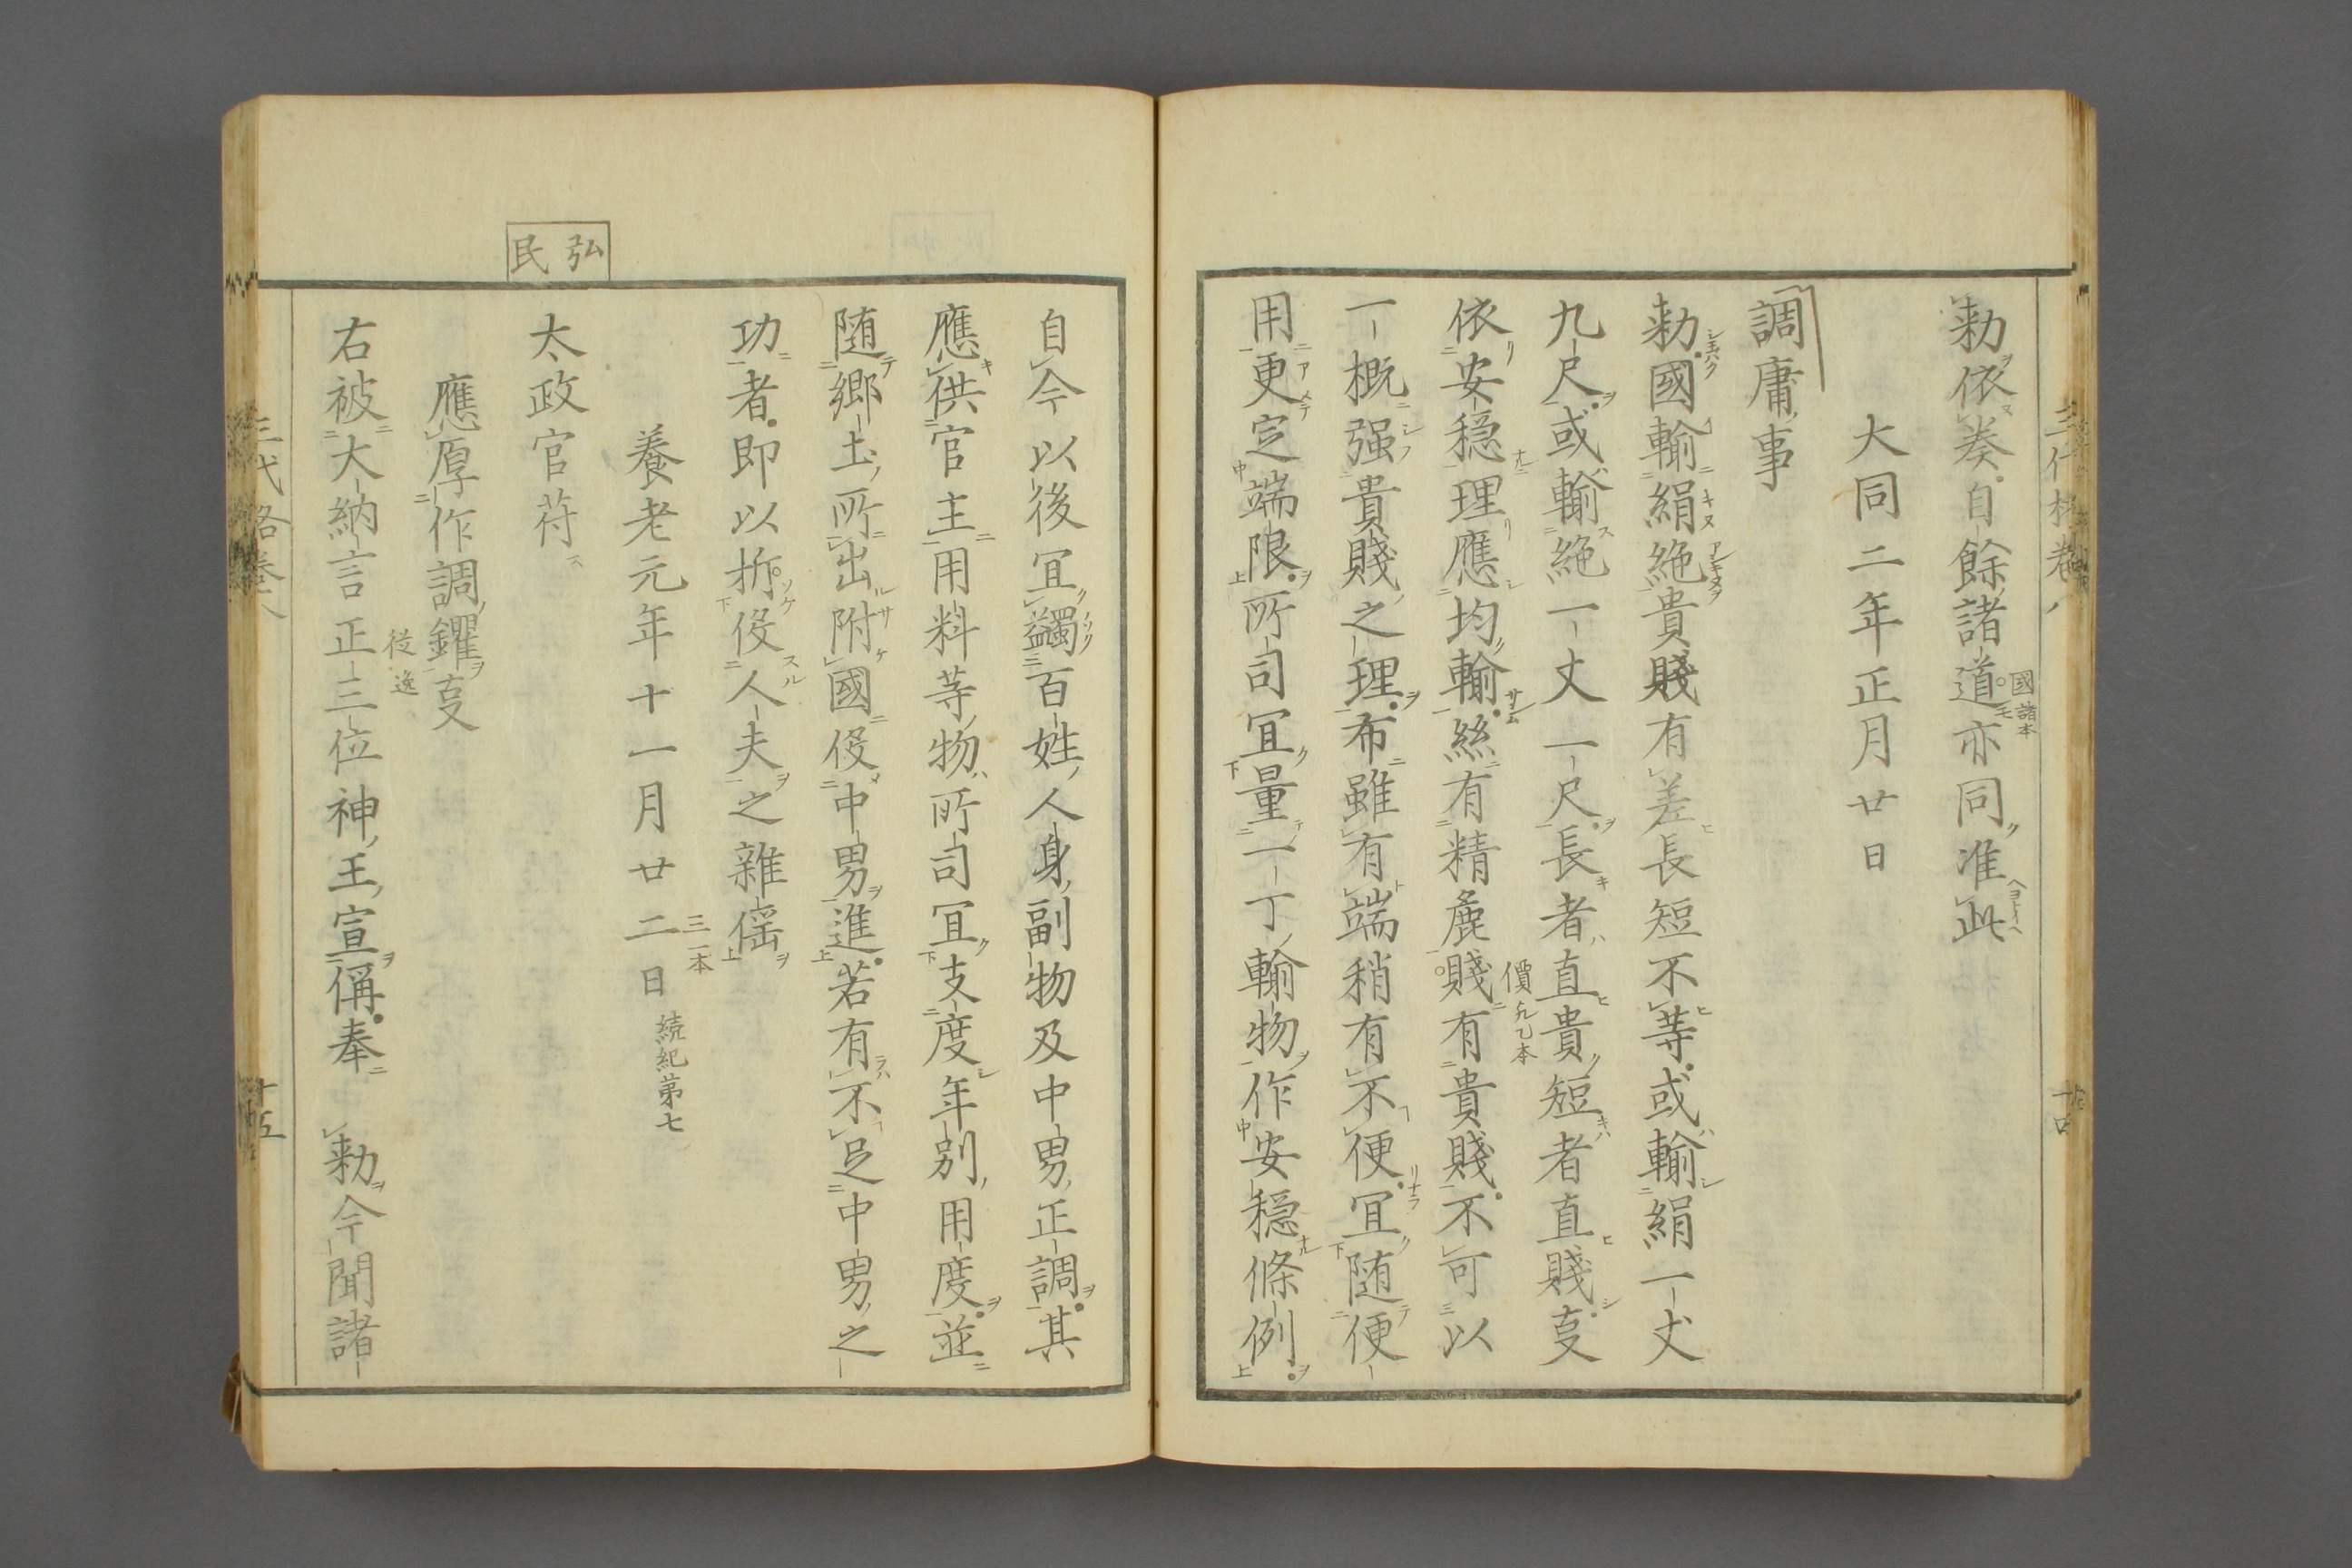 勅依奏自餘諸道亦同准此
國諸本
大同二年正月廿日
調庸事
勅國輸絹絁貴賤有差長短不等或輸絹一丈
九尺或輸絁一丈一尺長者直貴短者直賤亊
價
依安穏理應均輸絲有精麁賤有貴賤不可以
一概强貴賤之理布雖有端稍有不便冝随便
用更定端限所司冝量一丁輸物作安穏條例
自今以後冝蠲百姓人身副物及中男正調其
應供官主用料等物所司冝支度年別用度並
随鄉土所出附國役中男進若有不足中男之
功者即以折役人夫之雜徭
養老元年十一月廿二日
三一本
続紀第七
弘民
太政官苻
應厚作調钁亊
右被大納言正三位神王宣偁奉 勅今聞諸
從逸
三代格卷八
十五